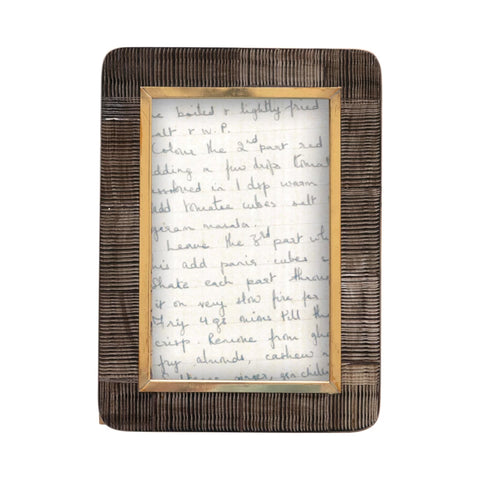 e boiled & lightly fried
alt & w.P.
Colour the 2nd part red
dding a few drops tomat
in 1 dsp warm
add tomatoe cubes salt
garam masala.
Leave the 3rd part whi
add panir cubes
Shake each part throu
it on very slow fire for
Fry 4 gs onions till th
crisp. Remove from ghe
fry almonds, cashew n
ginger, grn chilli